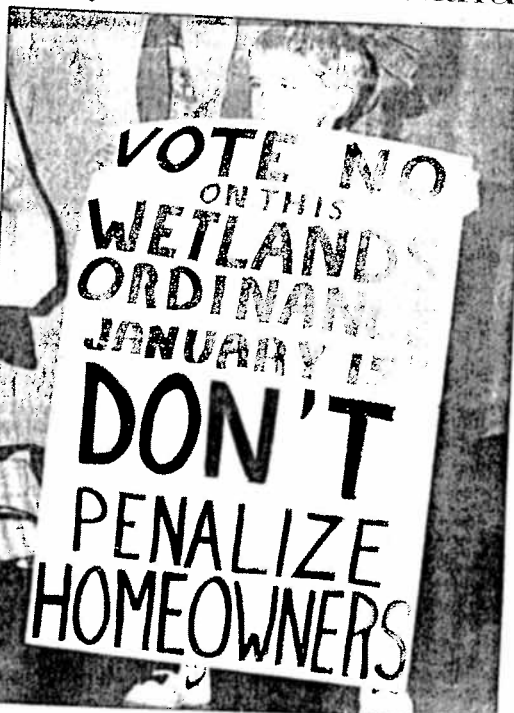 VOTE NO
ON THIS
WETLANDS
ORDINANCE
JANUARY
DON'T
PENALIZE
HOMEOWNERS